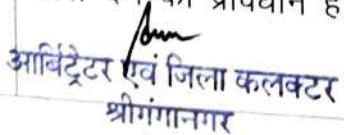 का प्रावधान है
आर्बिट्रेटर एवं जिला कलक्टर
श्रीगंगानगर